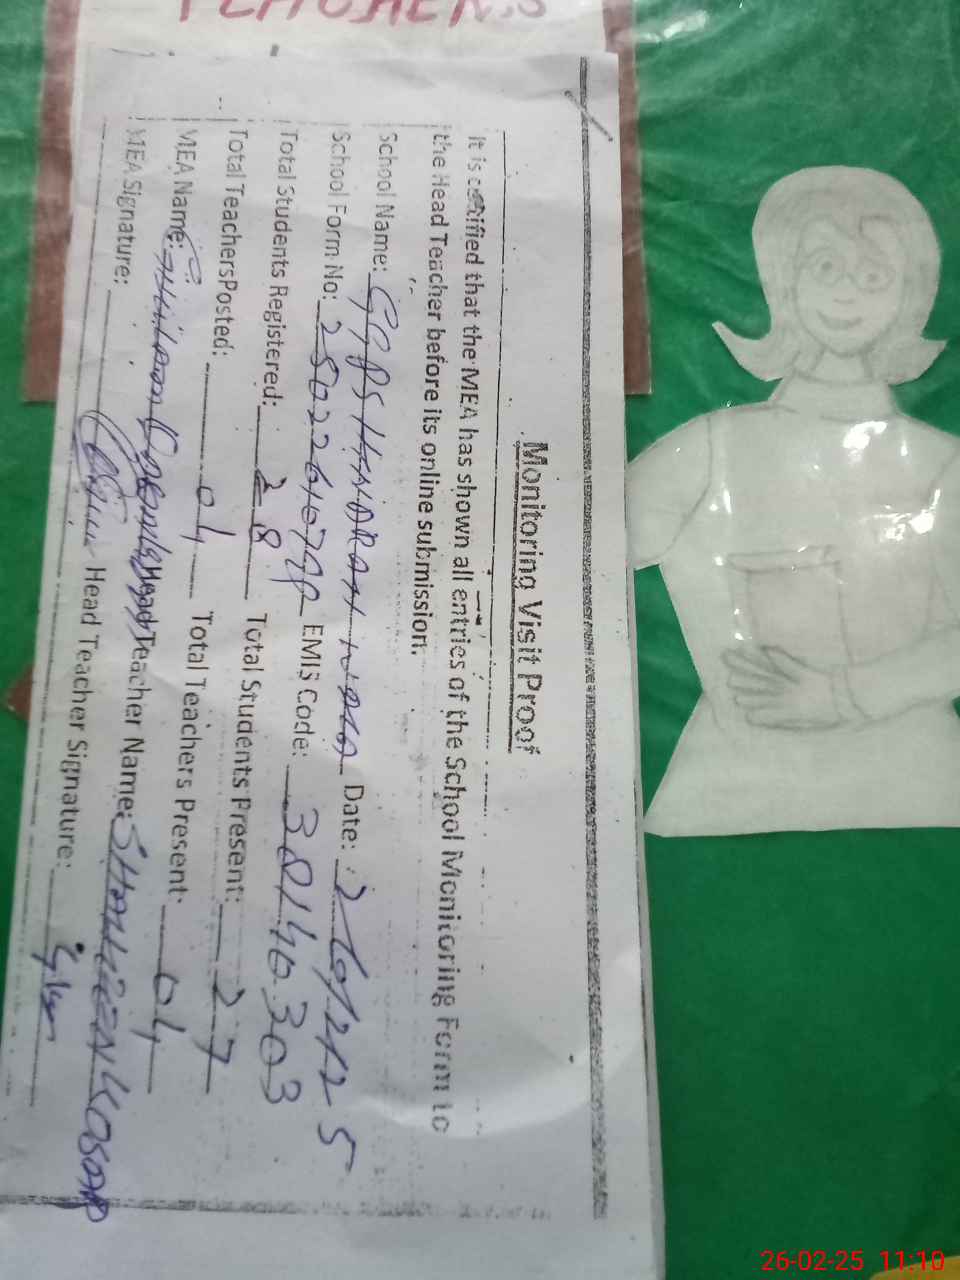 TEACHERS
Monitoring Visit Proof
It is certified that the MEA has shown all entries of the School Monitoring Form to
the Head Teacher before its online submission.
School Name: GGPS Date: 26/2/25
School Form No: EMIS Code: 38140303
Total Students Registered: 28 Total Students Present: 27
Total Teachers Posted: 04 Total Teachers Present: 04
MEA Name: Head Teacher Name:
MEA Signature: Head Teacher Signature:
26-02-25 11:10